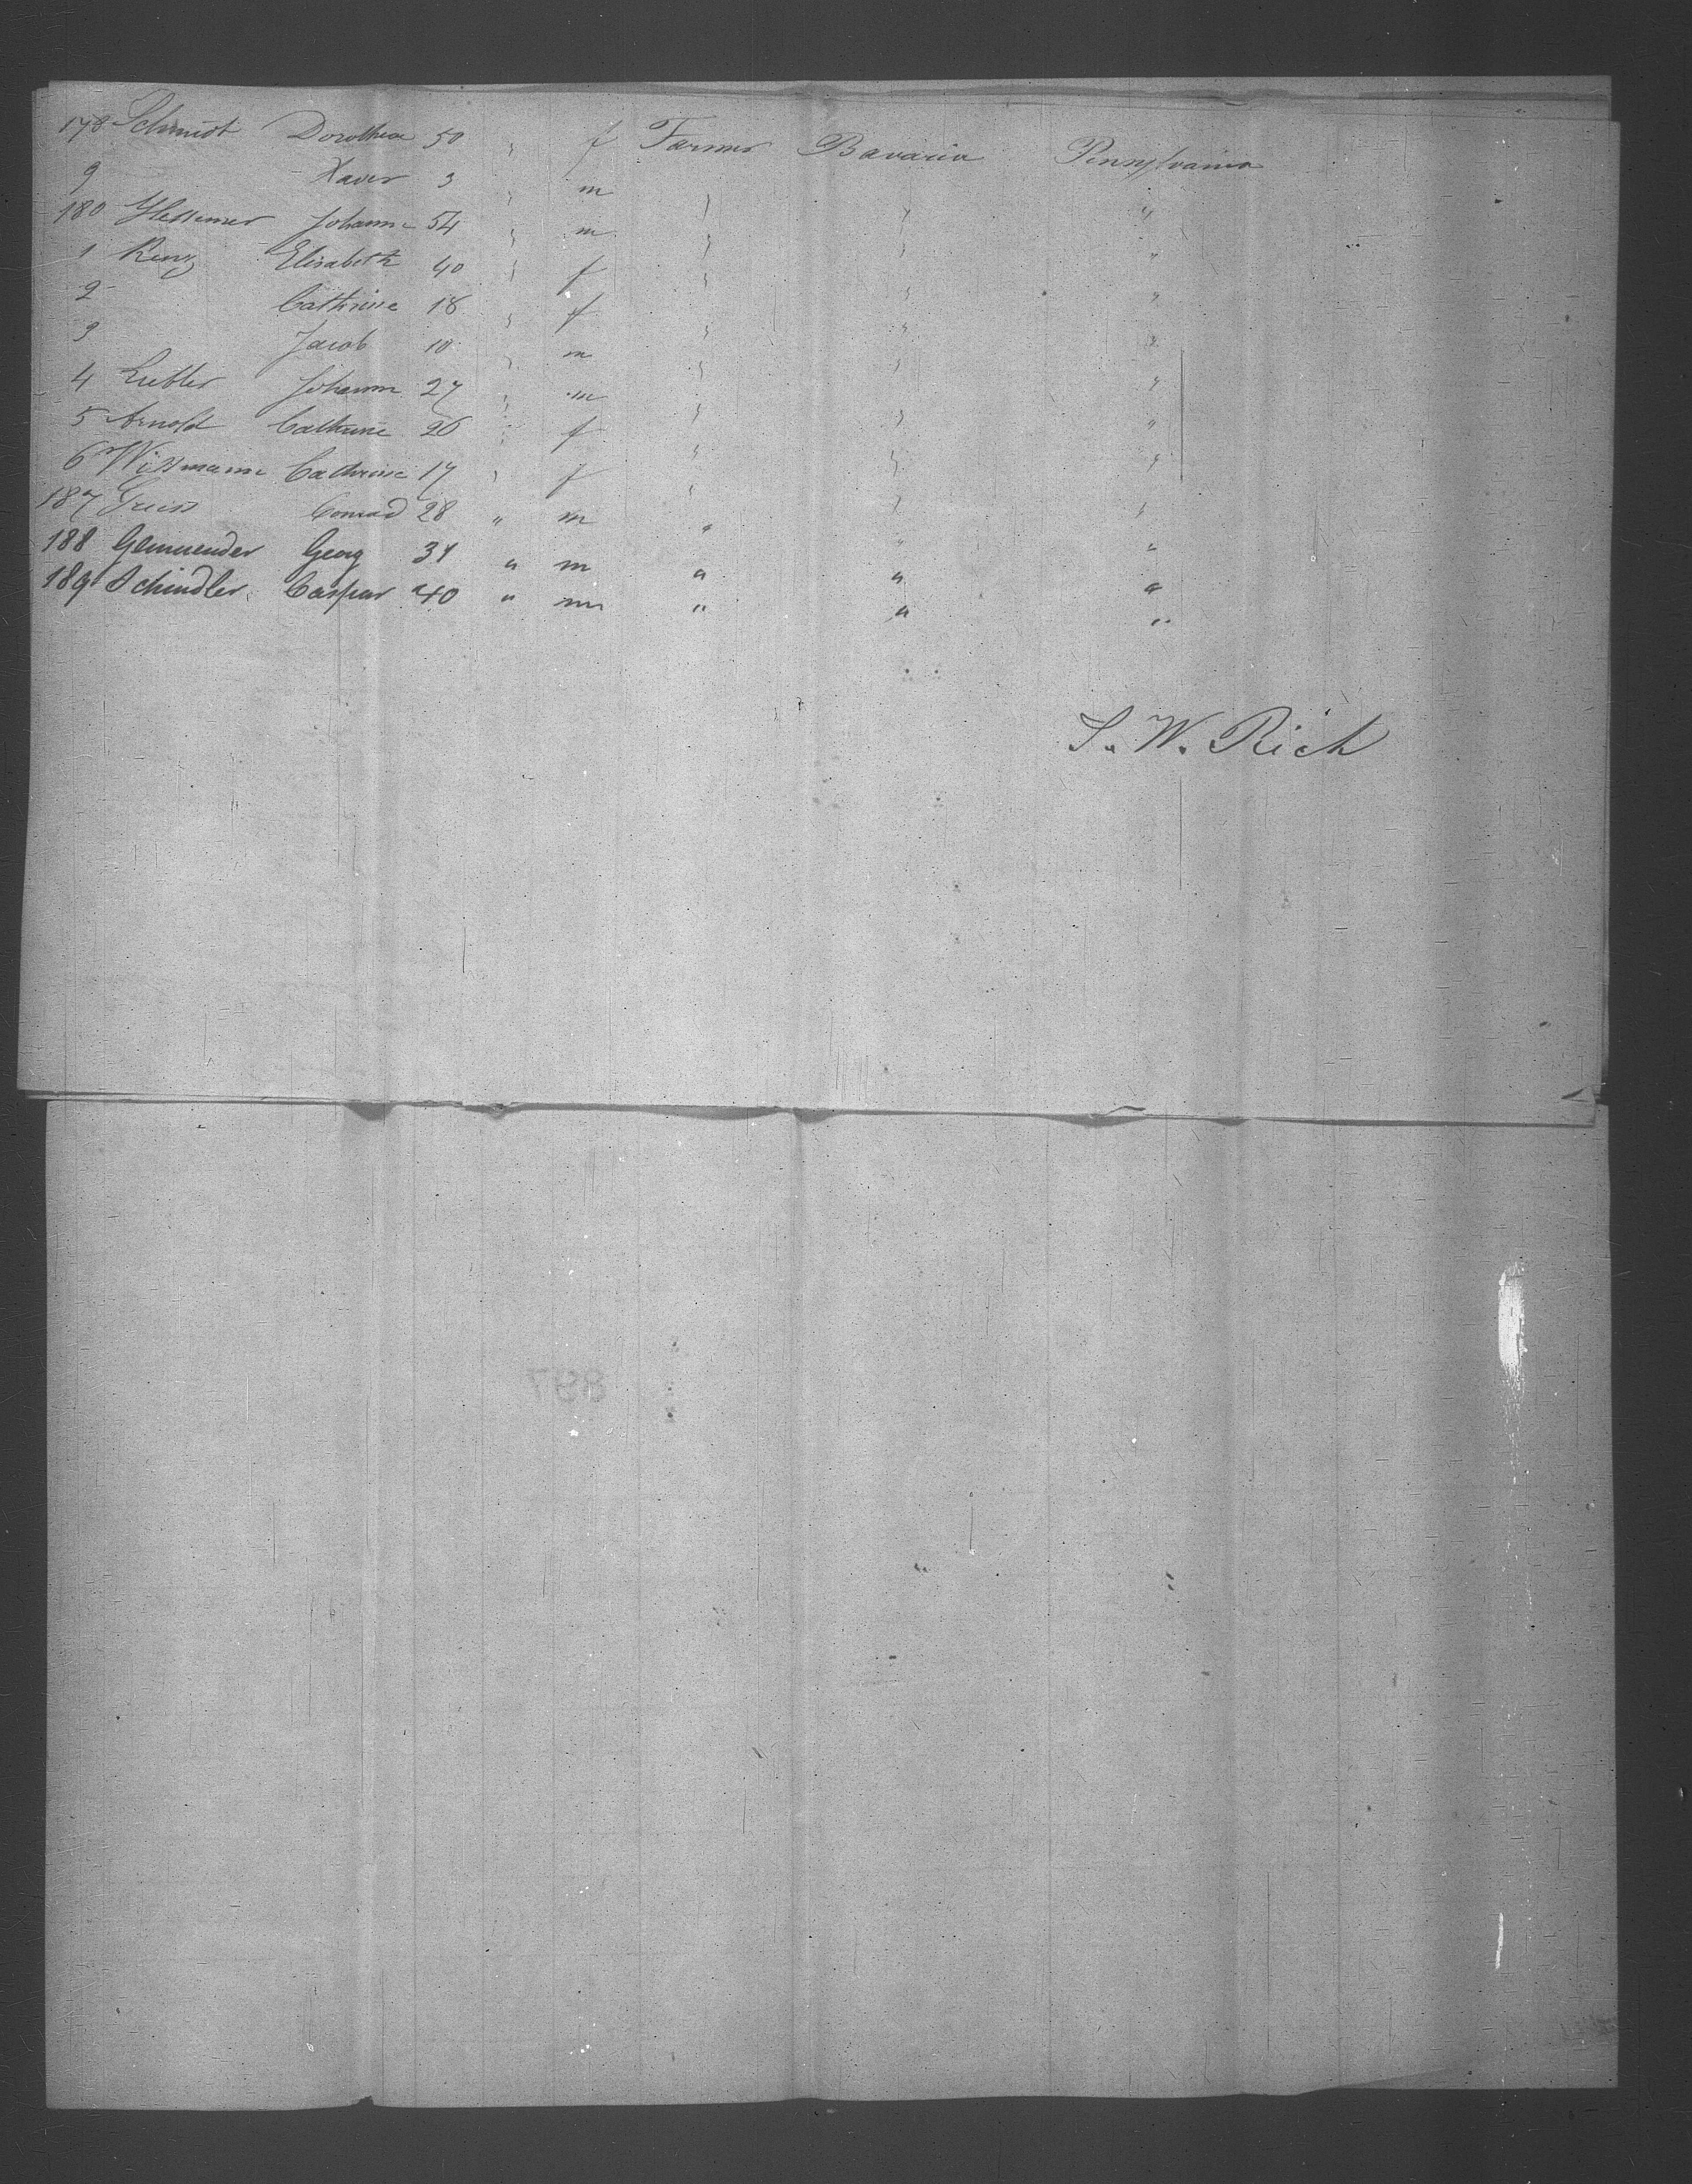 178 Schmidt Dorothea 50 " f Farmer Bavaria Pennsylvania
9 Xaver 3 " m " " "
180 Johann 54 " m " " "
1 Renz Elisabeth 40 " f " " "
2 Cathrine 18 " f " " "
3 Jacob 10 " m " " "
4 Johann 27 " m " " "
5 Arnold Cathrine 26 " f " " "
6 Wittmann Cathrine 17 " f " " "
187 Conrad 28 " m " " "
188 Gemuender Georg 34 " m " " "
189 Schindler Caspar 40 " m " " "
S. W. Rich
897